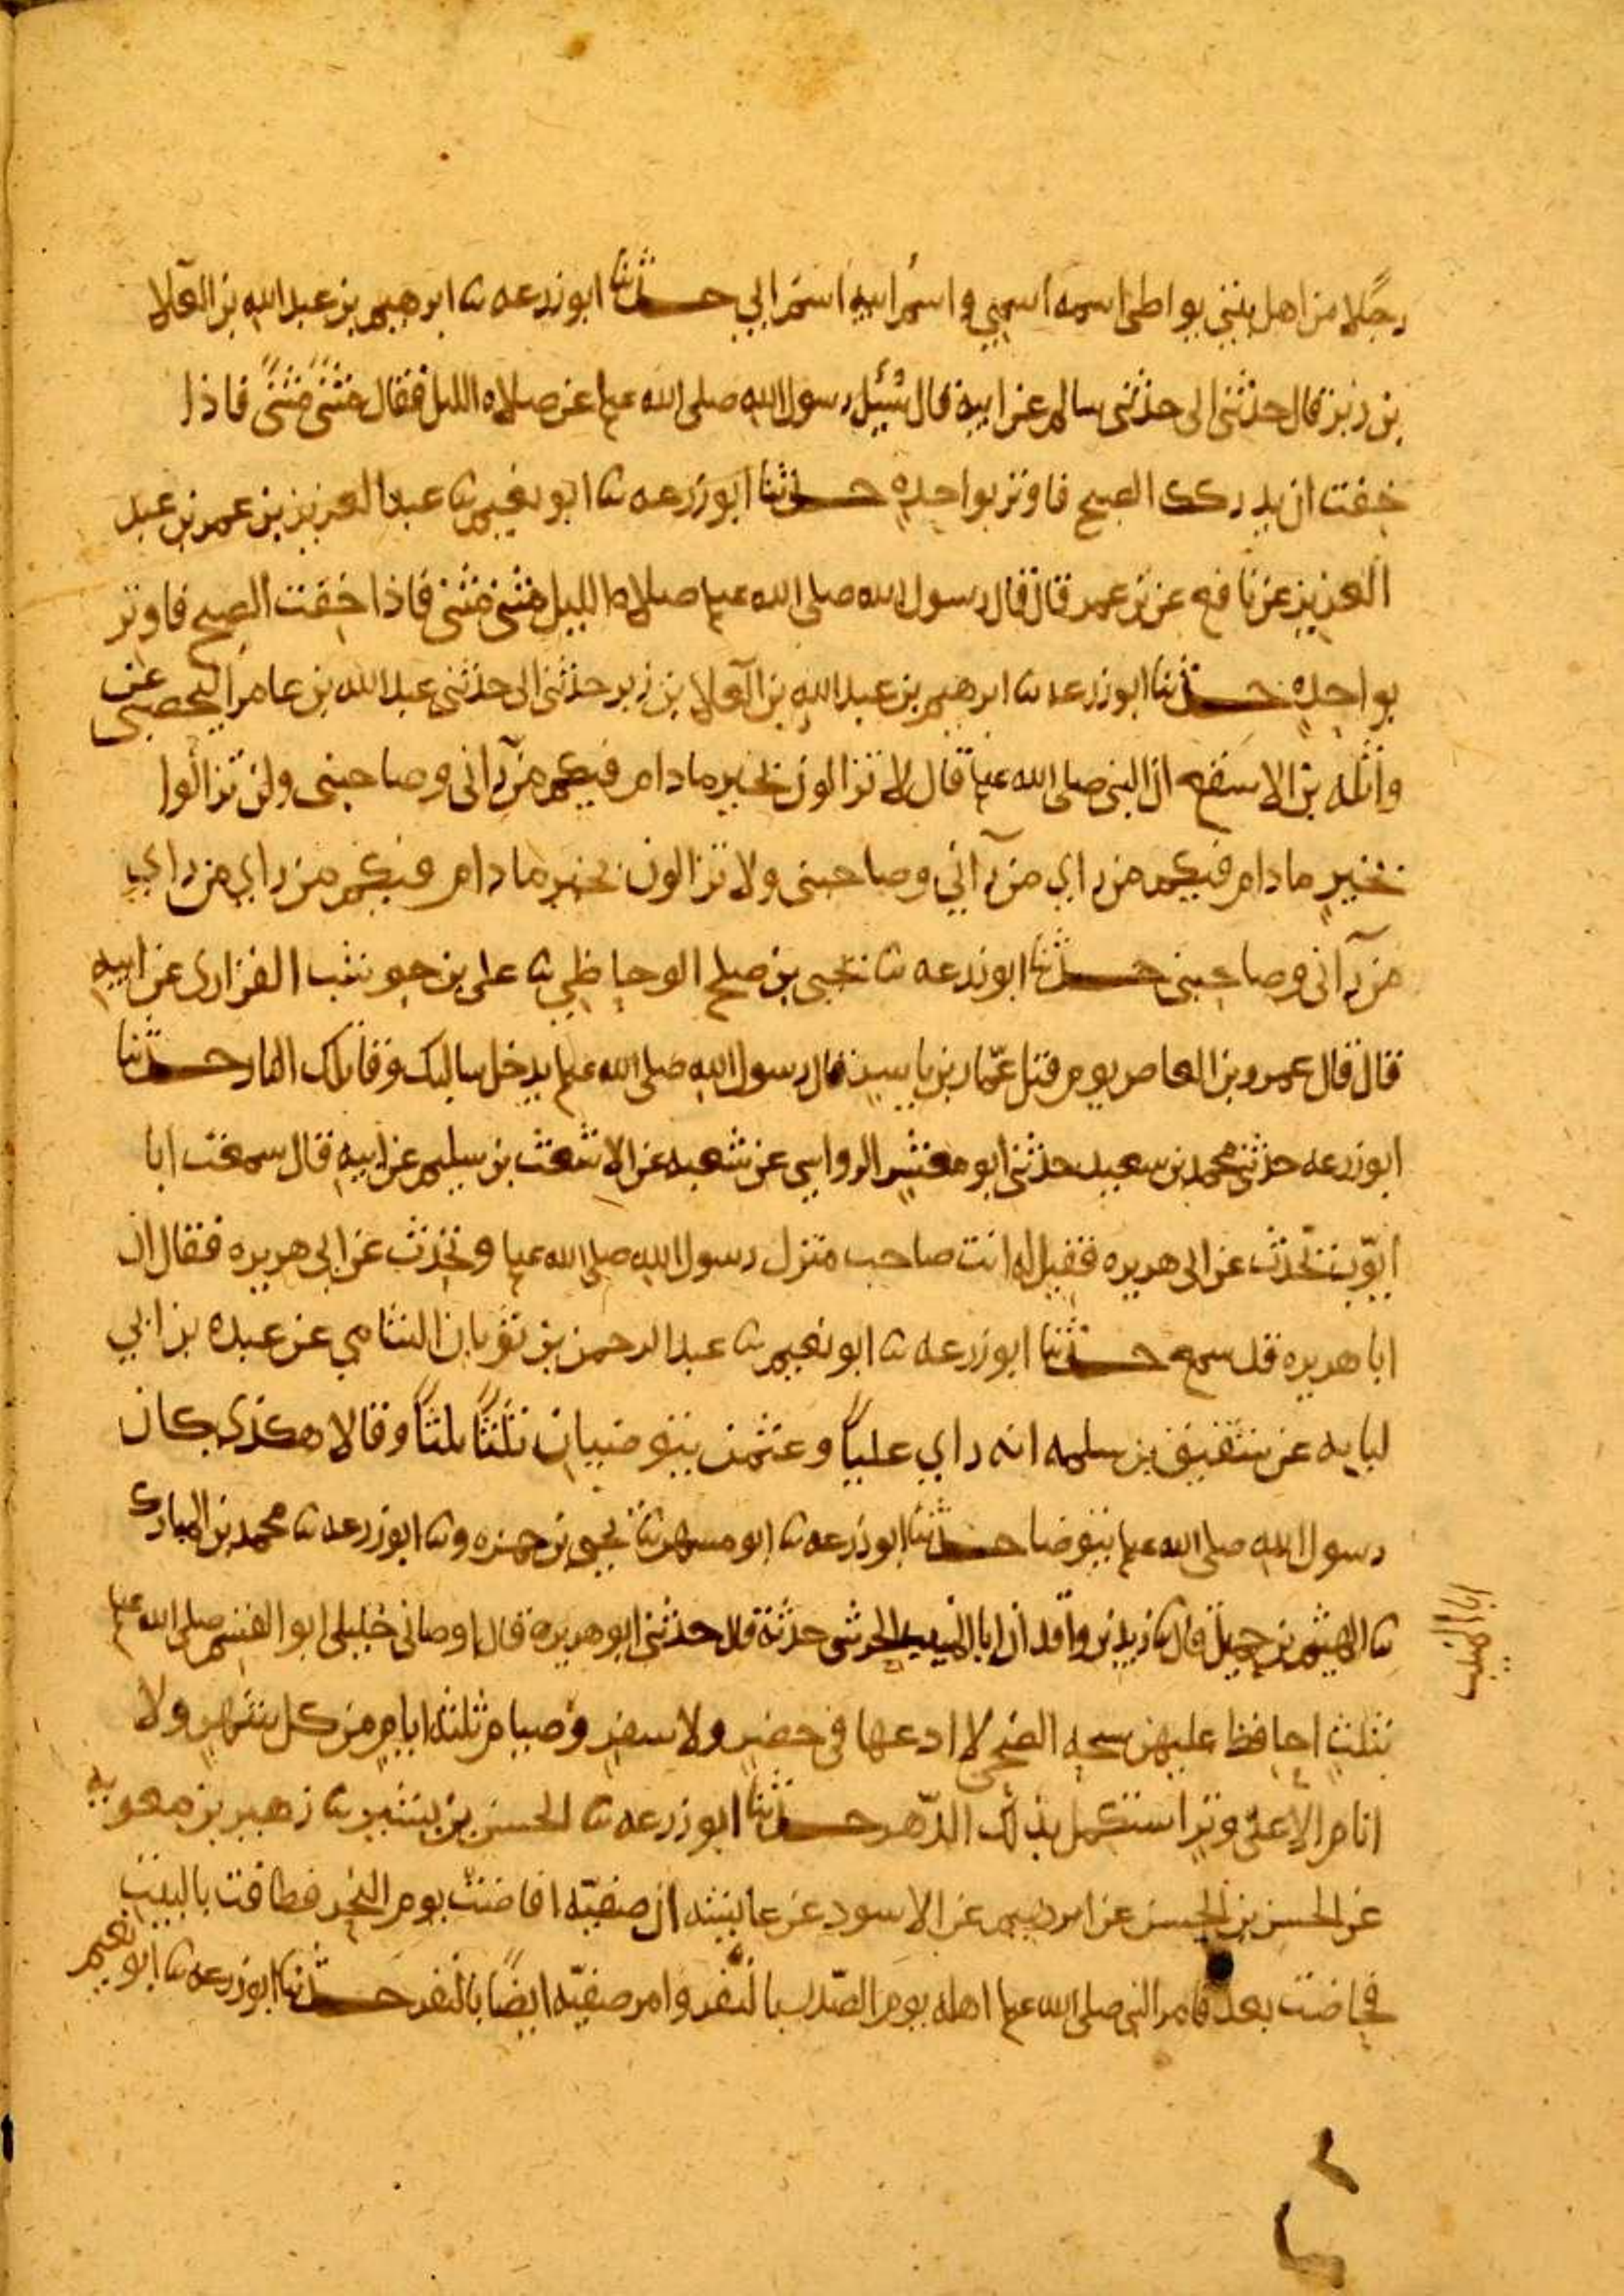 رجلا من اهل بيتي يواطى اسمه اسمي واسم ابيه اسم ابي حدثنا ابو زرعه ثنا ابرهيم بن عبد الله بن العلا
بن زبر قال حدثني ابي حدثني سالم عن ابيه قال سُئِل رسول الله صلى الله عليه عن صلاه الليل فقال مثنًى مثنًى فاذا
خفت ان يدركك الصبح فاوتر بواحدهٍ حدثنا ابو زرعه ثنا ابو نعيم ثنا عبد العزيز بن عمر بن عبد
العزيز عن نافع عن بن عمر قال قال رسول الله صلى الله عليه صلاه الليل مثنى مثنى فاذا خفت الصبح فاوتر
بواحدهٍ حدثنا ابو زرعه ثنا ابرهيم بن عبد الله بن العلا بن زبر حدثني ابي حدثني عبد الله بن عامر اليحصبي عن
واثله بن الاسقع ان النبي صلى الله عليه قال لا تزالون بخير ما دام فيكم من رآني وصاحبني ولن تزالوا
بخيرٍ ما دام فيكم من راي من رآني وصاحبني ولا تزالون بخير ما دام فيكم من راي من راي
من رآني وصاحبني حدثنا ابو زرعه ثنا يحيى بن صلح الوحاظي ثنا علي بن حوشب الفزاري عن ابيه
قال قال عمرو بن العاص يوم قتل عمّار بن ياسر قال رسول الله صلى الله عليه يدخل سالبك وقاتلك النار حدثنا
ابو زرعه حدثني محمد بن سعيد حدثني ابو معشر الرواسي عن شعبه عن الاشعث بن سليم عن ابيه قال سمعت ابا
ايّوب يحّدث عن ابي هريره فقيل له انت صاحب منزل رسول الله صلى الله عليه وتحدّث عن ابي هريره فقال ان
ابا هريره قد سمع حدثنا ابو زرعه ثنا ابو نعيم ثنا عبد الرحمن بن ثوبان الشامي عن عبده بن ابي
لبابه عن شقيق بن سلمه انه راي علياً وعثمن يتوضيان ثلثاً ثلثاً وقالا هكذى كان
رسول الله صلى الله عليه يتوضا حدثنا ابو زرعه ثنا ابو مسهر ثنا يحيى بن حمزه وثنا ابو زرعه ثنا محمد بن المبارك
ثنا الهيثم بن حميل قال ثنا زيد بن واقد ان ابا المنيب الجرشي حدثه قال حدثني ابو هريرة قال اوصاني خليلي ابو القسم صلى الله عليه
ابا المنيب
بثلثٍ احافظ عليهن سبحه الضحى لا ادعها في حضرٍ ولا سفرٍ وصيام ثلثه ايام من كل شهرٍ ولا
انام الا على وترٍ استكمل بذلك الدّهر حدثنا ابو زرعه ثنا الحسن بن بشير ثنا زهير بن معويه
عن الحسن بن الحسن عن ابرهيم عن الاسود عن عايشه ان صفيّه افاضت يوم النحر فطافت بالبيت
فحاضت بعد فامر النبي صلى الله عليه اهله يوم الصّدر بالنّفر وامر صفيّه ايضًا بالنفر حدثنا ابو زرعه ثنا ابو نعيم